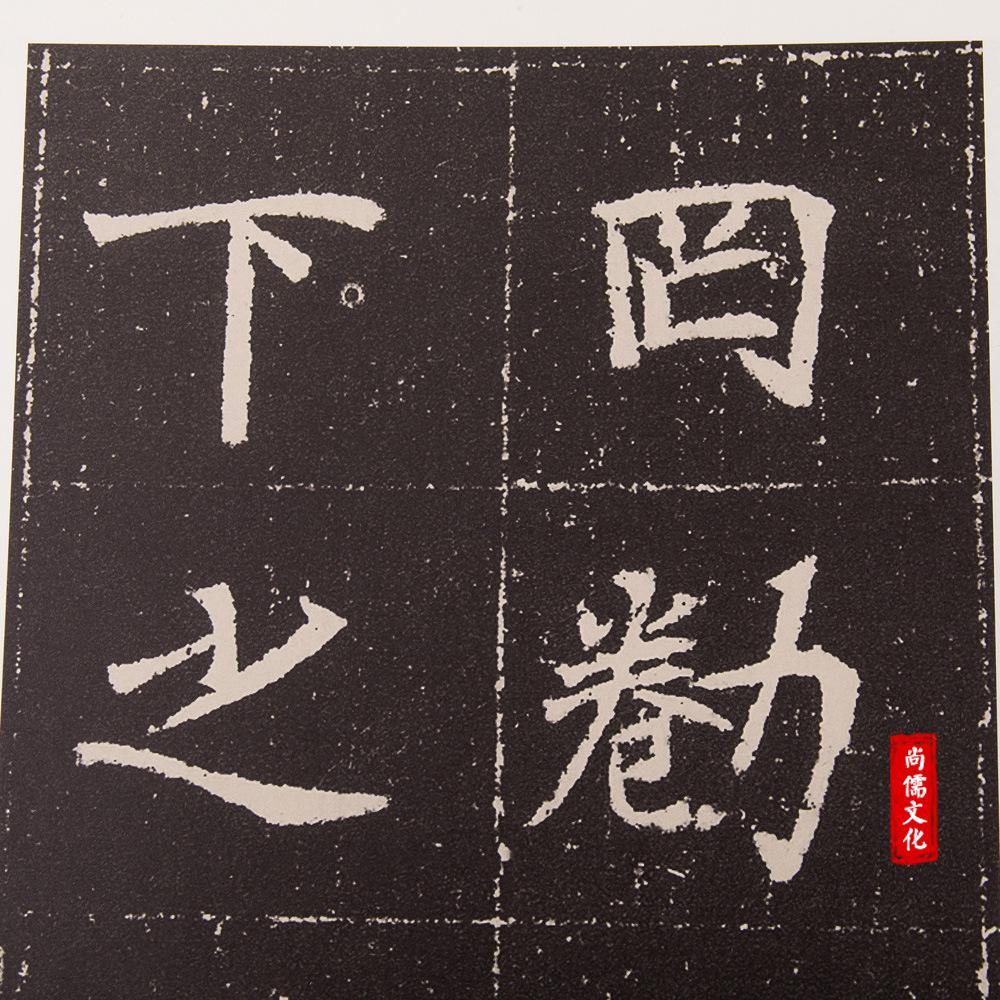 罔勌
下之
尚儒文化